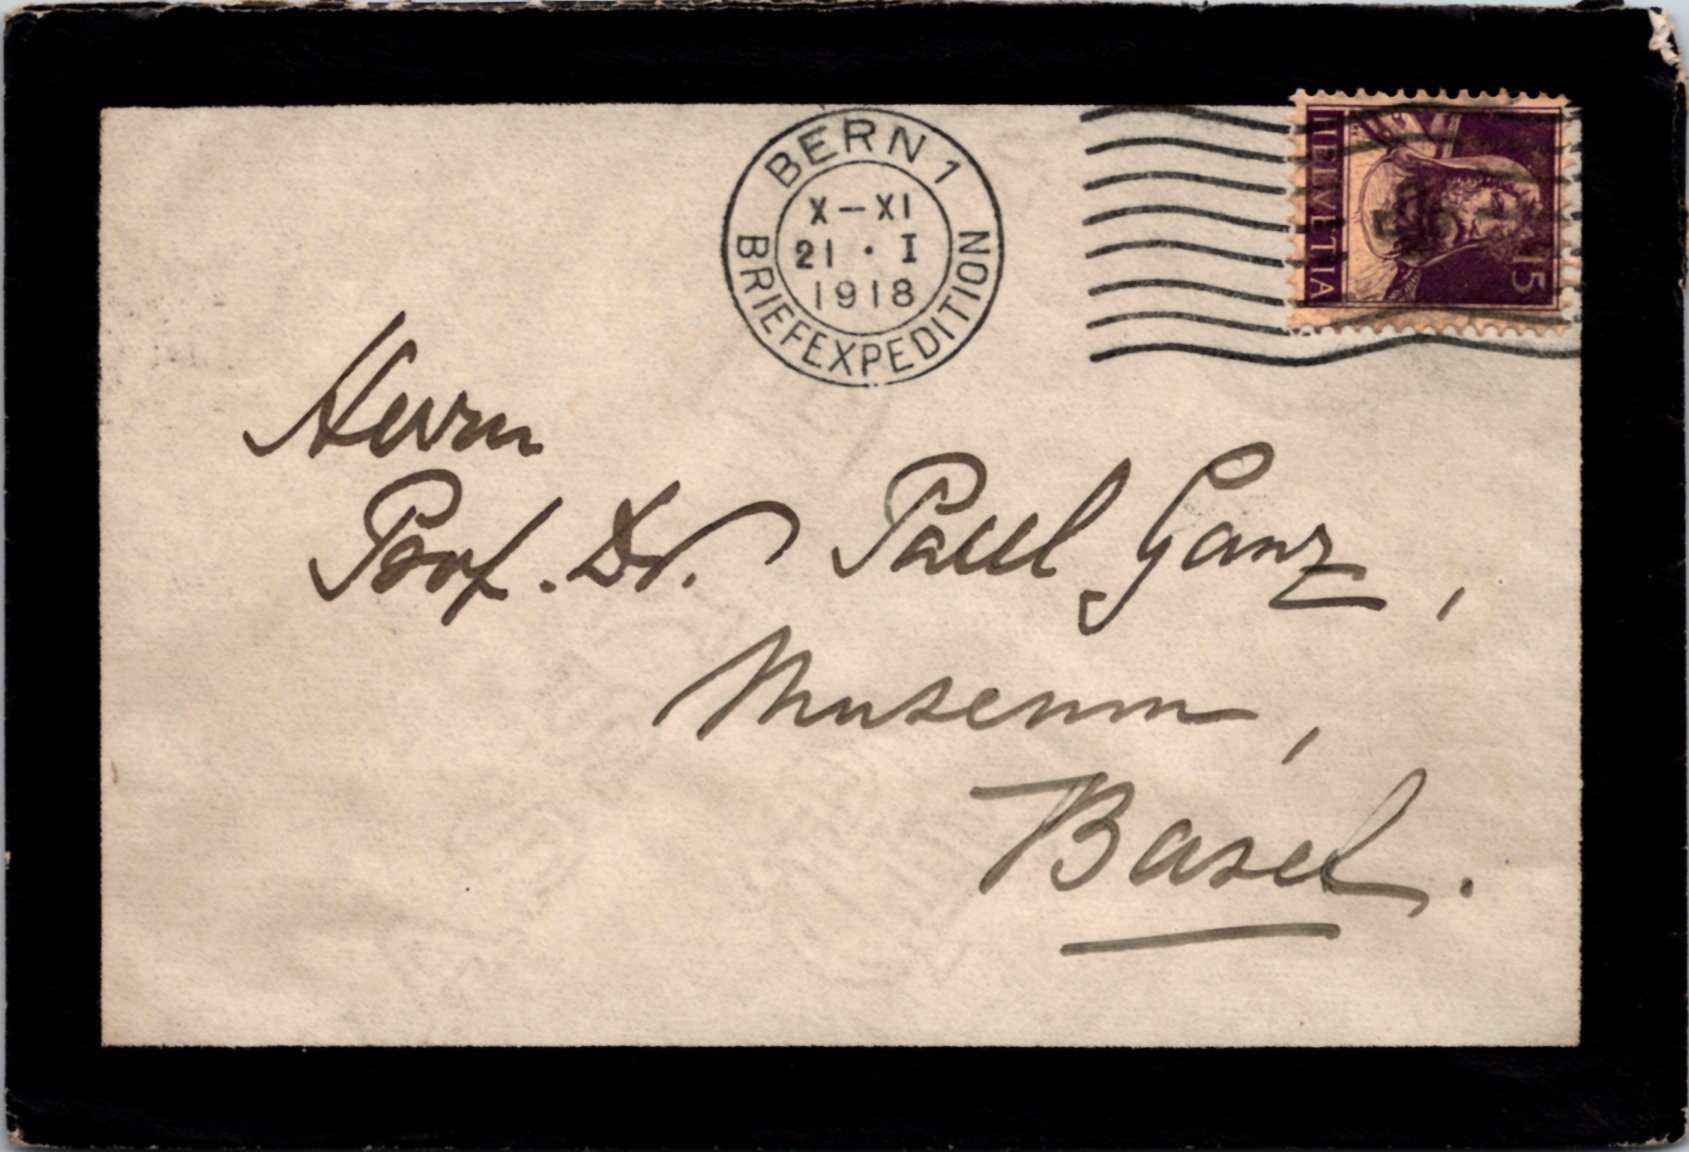 BERN 1
X-XI
21 · I
1918
BRIEFEXPEDITION
HELVETIA
15
Herrn
Prof. Dr. Paul Ganz,
Museum,
Basel.